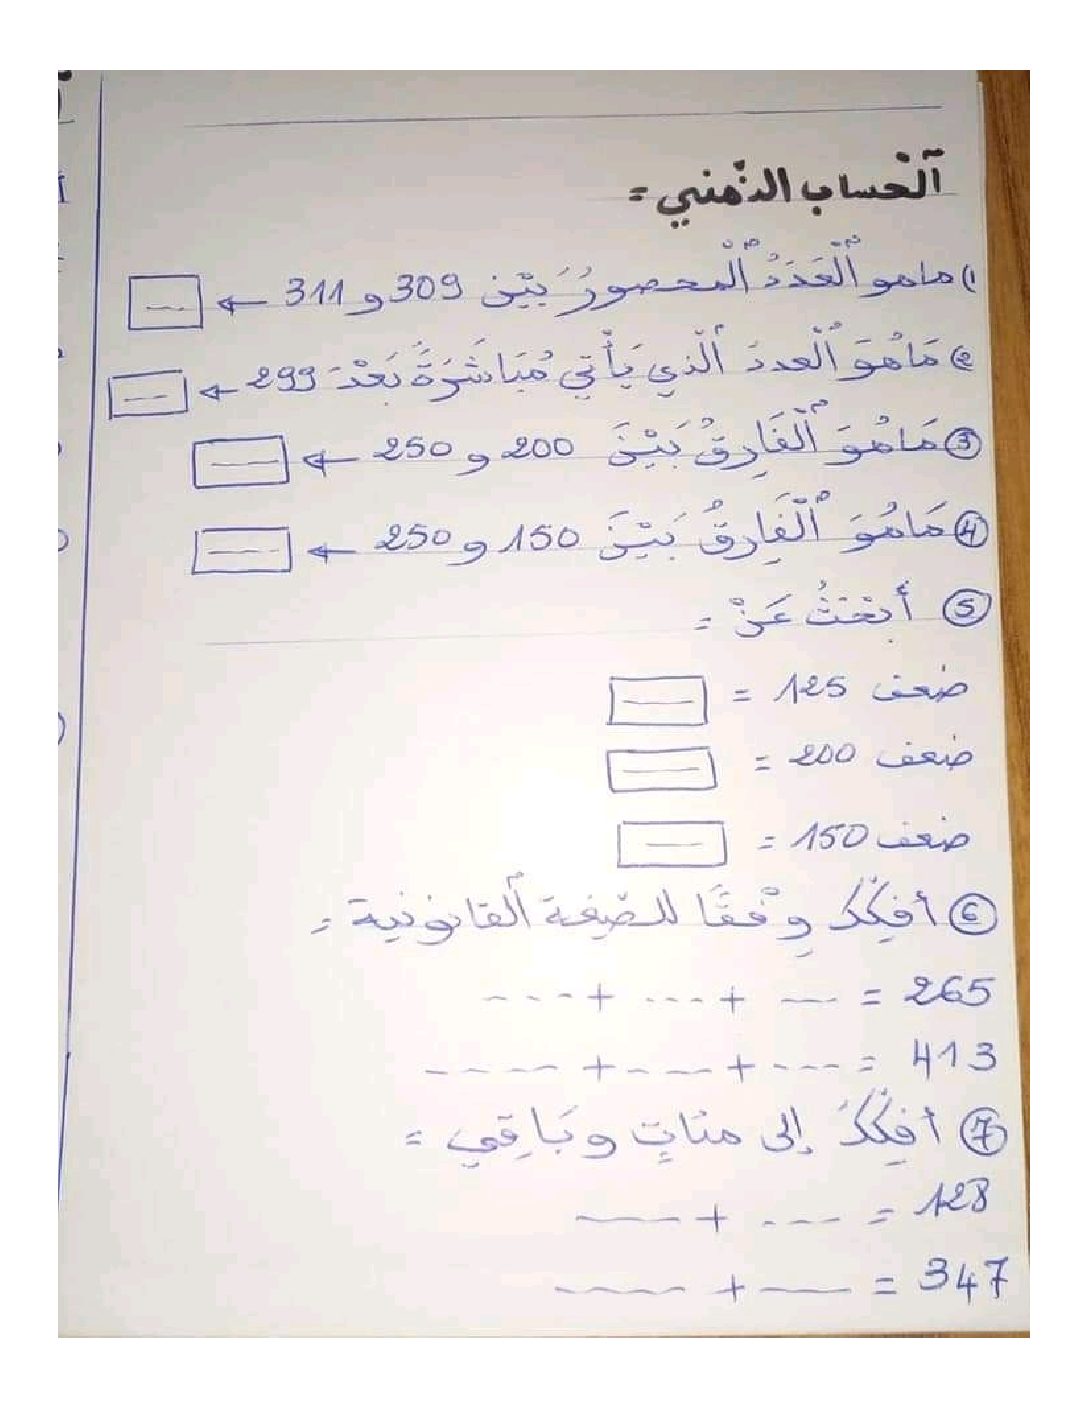 ٱلْحساب الذّهني =
1) ماهو ٱلْعَدَدُ ٱلْمحصورُ بَيْن 309 و 311 ←
2) مَاهُوَ ٱلْعددَ ٱلّذي يَأْتي مُبَاشَرَةً بَعْدَ 299 ←
③ مَاهُوَ ٱلْفَارِقُ بَيْنَ 200 و 250 ←
④ مَاهُوَ ٱلْفَارِقُ بَيْنَ 150 و 250 ←
⑤ أَبْحَثُ عَنْ =
ضعف 125 =
ضعف 200 =
ضعف 150 =
⑥ أفكّكُ وِفْقًا للصّيغة ٱلقانونية =
265 = --- + --- + ---
413 = --- + --- + ----
⑦ أفكّكُ إلى مئاتٍ وبَاقي =
128 = --- + ----
347 = --- + ----